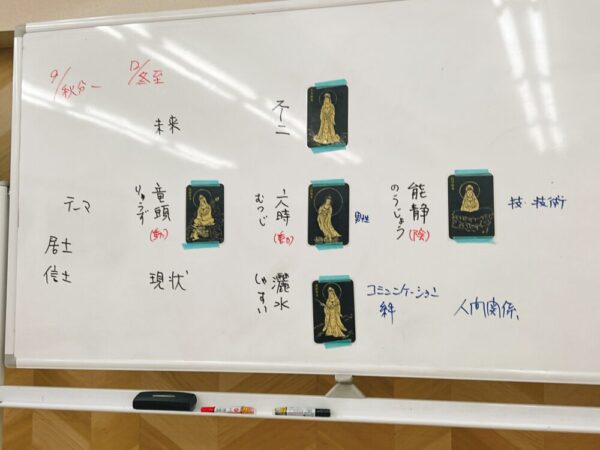 9/秋分ー
12/冬至
未来
不二
テーマ
竜頭
りゅうず
(動)
六時
むつじ
(動)
男性
能静
のうじょう
(陰)
技・技術
居士
信士
現状
灑水
しゃすい
コミュニケーション
絆
人間関係